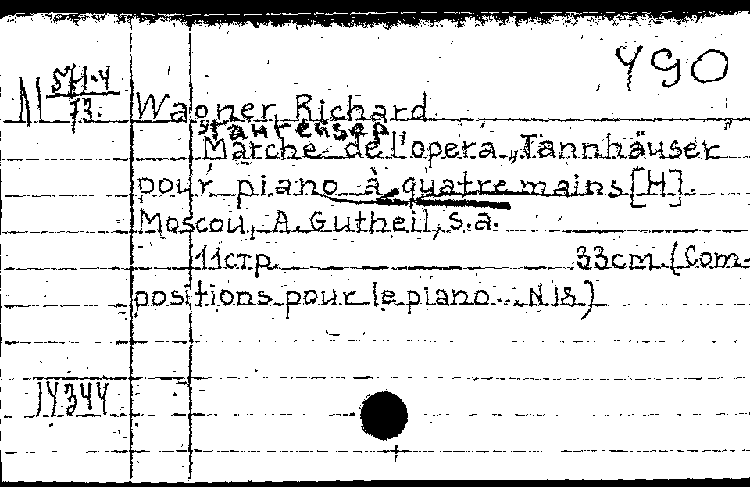 490
М 571-4
73.
Wagner, Richard.
Тангейзер
Marche de l'opera „Tannhäuser"
pour piano à quatre mains [Н].
Moscou, A. Gutheil, s.a.
11 стр. 33 cm. (Com-
positions pour le piano... N 18)
14344